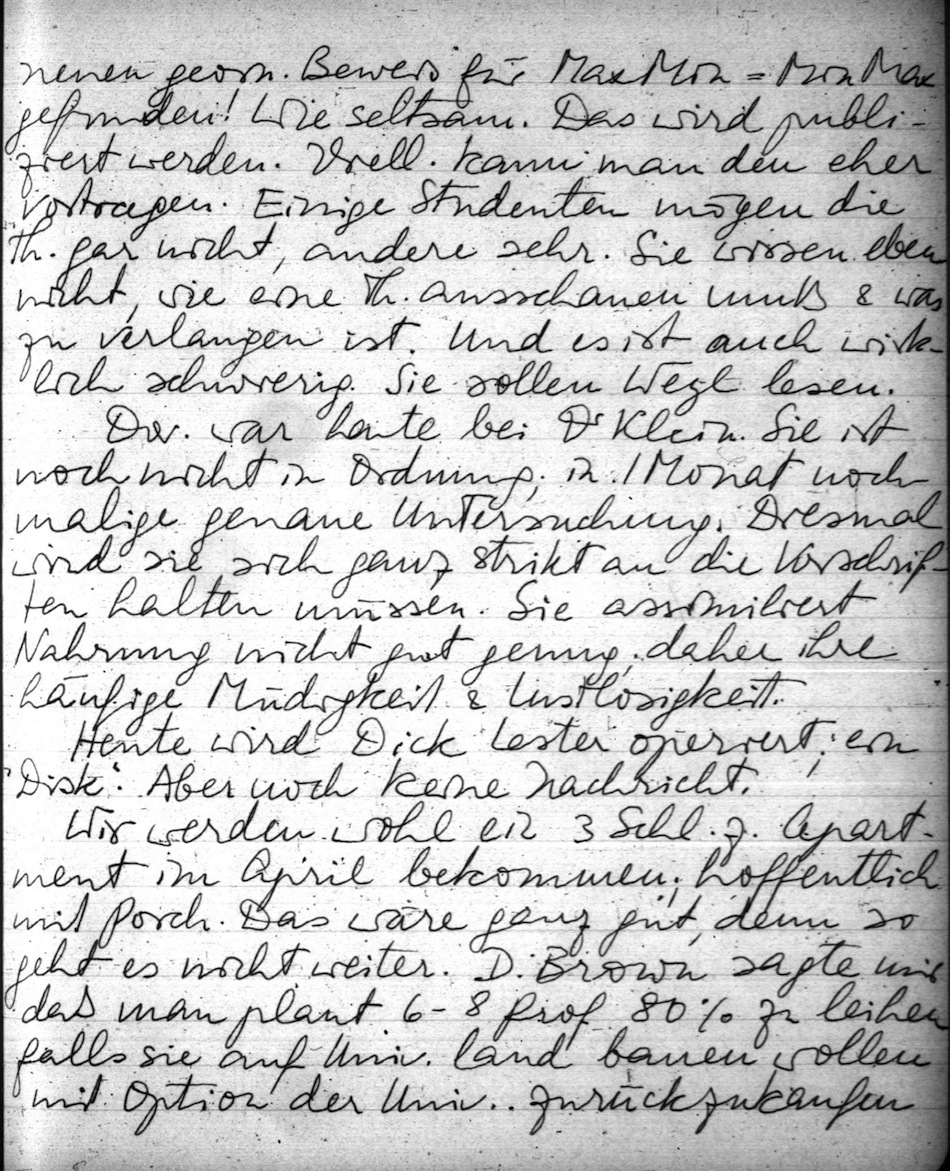 neuen geom. Beweis für Max Min = Min Max
gefunden! Wie seltsam. Das wird publi-
ziert werden. Viell. kann man den eher
vortragen. Einige Studenten mögen die
Th. gar nicht, andere sehr. Sie wissen eben
nicht, wie eine Th. ausschauen muß & was
zu verlangen ist. Und es ist auch wirk-
lich schwierig. Sie sollen Weyl lesen.
Do. war heute bei Dr Klein. Sie ist
noch nicht in Ordnung, in 1 Monat noch-
malige genaue Untersuchung. Diesmal
wird sie sich ganz strikt an die Vorschrif-
ten halten müssen. Sie assimiliert
Nahrung nicht gut genug, daher ihre
häufige Müdigkeit & Lustlosigkeit.
Heute wird Dick Lester operiert; ein
"Disk". Aber noch keine Nachricht.
Wir werden wohl ein 3 Schl. z. Apart-
ment im April bekommen; hoffentlich
mit Porch. Das wäre ganz gut, denn so
geht es nicht weiter. D. Brown sagte mir
daß man plant 6-8 Prof 80% zu leihen
falls sie auf Univ. land bauen wollen
mit Option der Univ.. zurückzukaufen